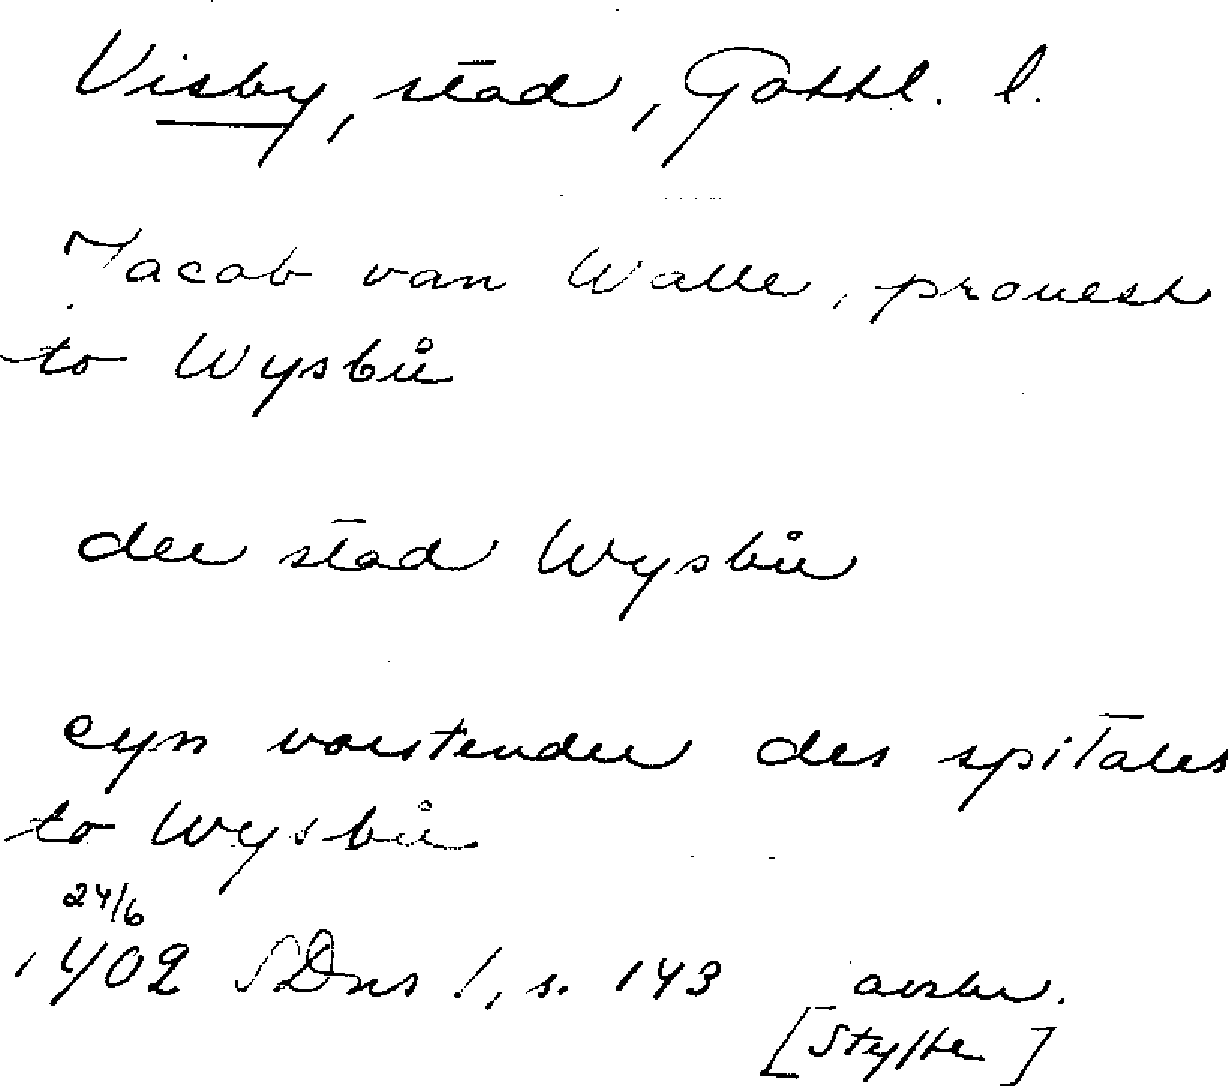 Visby, stad, Gottl. l.
Jacob van Walle, prouest
to Wysbů
der stad Wysbů
eyn vorstender des spitales
to Wysbů
24/6
1402 SDns 1, s. 143 avskr.
[Styffe]